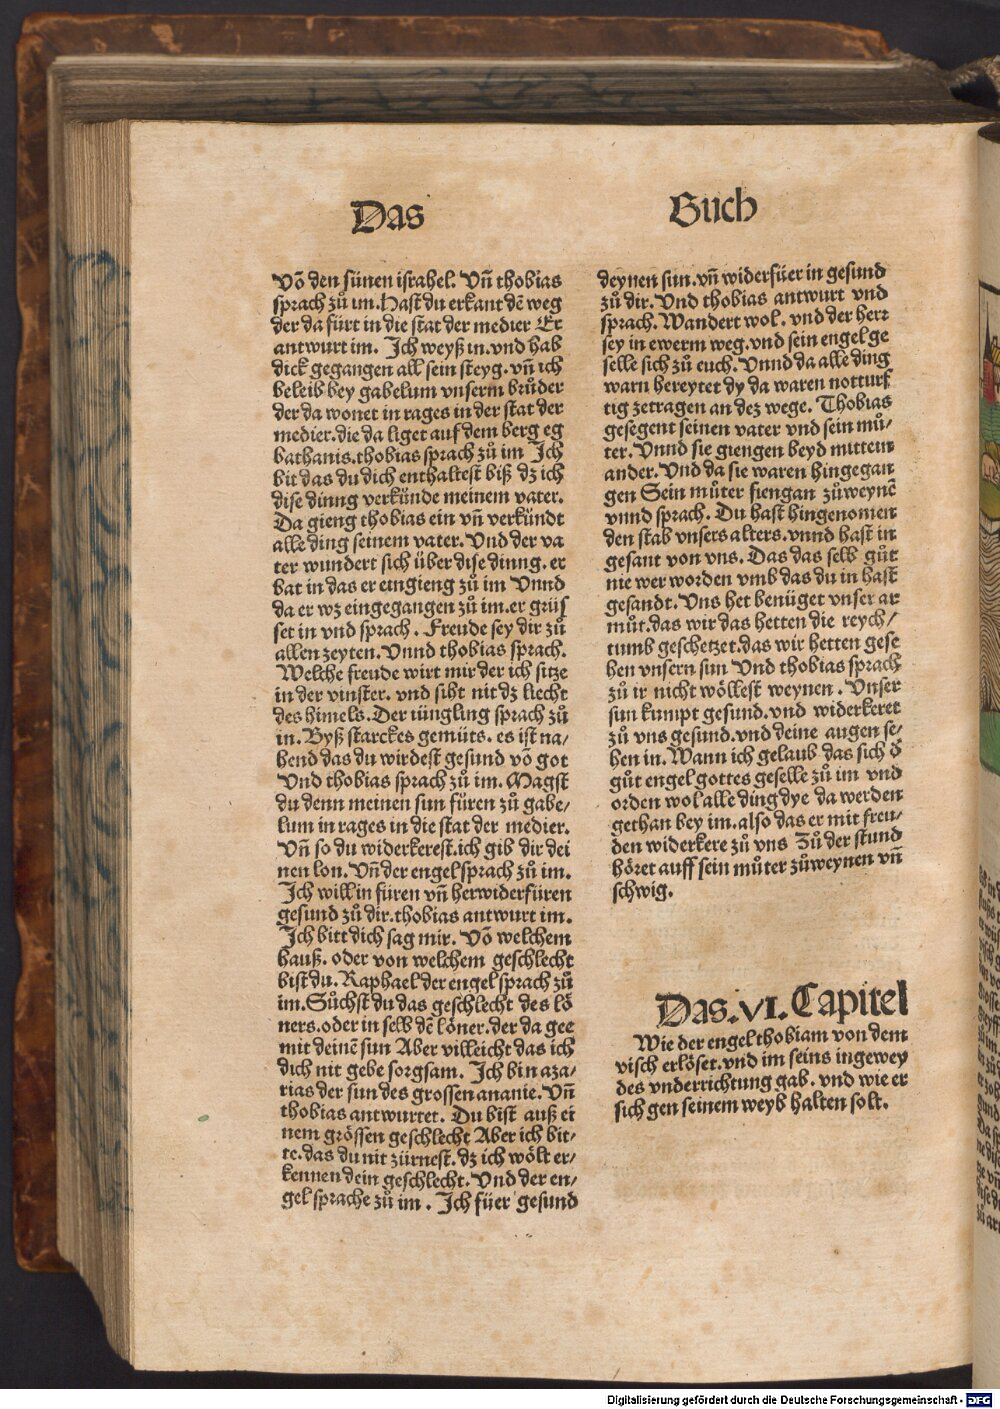 Das
Buch
Võ den sünen israhel. Vñ thobias
sprach zů im. Hast du erkant dẽ weg
der da fürt in die stat der medier Er
antwurt im. Ich weyß in. vnd hab
dick gegangen all sein steyg. vñ ich
beleib bey gabelum vnserm brůder
der da wonet in rages in der stat der
medier. die da liget auf dem berg eg
bathanis. thobias sprach zů im Ich
bit das du dich enthaltest biß dz ich
dise dinng verkünde meinem vater.
Da gieng thobias ein vñ verkündt
alle ding seinem vater. Vnd der va
ter wundert sich über dise dinng. er
bat in das er eingieng zů im Vnnd
da er wz eingegangen zů im. er grüs
set in vnd sprach. Freude sey dir zů
allen zeyten. Vnnd thobias sprach.
Welche freude wirt mir der ich sitze
in der vinster. vnd siht nit dz liecht
des himels. Der iüngling sprach zů
in. Byß starckes gemüts. es ist na/
hend das du wirdest gesund võ got
Vnd thobias sprach zů im. Magst
du denn meinen sun füren zů gabe/
lum in rages in die stat der medier.
Vñ so du widerkerest. ich gib dir dei
nen lon. Vñ der engel sprach zů im.
Ich will in füren vñ herwiderfüren
gesund zů dir. thobias antwurt im.
Ich bitt dich sag mir. Võ welchem
hauß. oder von welchem geschlecht
bist du. Raphael der engel sprach zů
im. Sůchst du das geschlecht des lö
ners. oder in selb dẽ löner. der da gee
mit deinẽ sun Aber villeicht das ich
dich nit gebe sorgsam. Ich bin aza/
rias der sun des grossen ananie. Vñ
thobias antwurtet. Du bist auß ei
nem grössen geschlecht Aber ich bit/
te. das du nit zürnest. dz ich wölt er/
kennen dein geschlecht. Vnd der en/
gel sprache zů im. Ich füer gesund
deynen sun. vñ widerfüer in gesund
zů dir. Vnd thobias antwurt vnd
sprach. Wandert wol. vnd der herr
sey in ewerm weg. vnd sein engel ge
selle sich zů euch. Vnnd da alle ding
warn bereytet dy da waren notturf
tig zetragen an dez wege. Thobias
gesegent seinen vater vnd sein mů/
ter. Vnnd sie giengen beyd mittein
ander. Vnd da sie waren hingegan
gen Sein můter fiengan zůweynẽ
vnnd sprach. Du hast hingenomen
den stab vnsers alters. vnnd hast in
gesant von vns. Das das selb gůt
nie wer worden vmb das du in hast
gesandt. Vns het benüget vnser ar
můt. das wir das hetten die reych/
tumb geschetzet. das wir hetten gese
hen vnsern sun Vnd thobias sprach
zů ir nicht wöllest weynen. Vnser
sun kumpt gesund. vnd widerkeret
zů vns gesund. vnd deine augen se/
hen in. Wann ich gelaub das sich d̕
gůt engel gottes geselle zů im vnd
orden wol alle ding dye da werden
gethan bey im. also das er mit freu/
den widerkere zů vns Zů der stund
höret auff sein můter zůweynen vñ
schwig.
Das. VI. Capitel
Wie der engel thobiam von dem
visch erlöset. vnd im seins ingewey
des vnderrichtung gab. vnd wie er
sich gen seinem weyb halten solt.
Digitalisierung gefördert durch die Deutsche Forschungsgemeinschaft - DFG